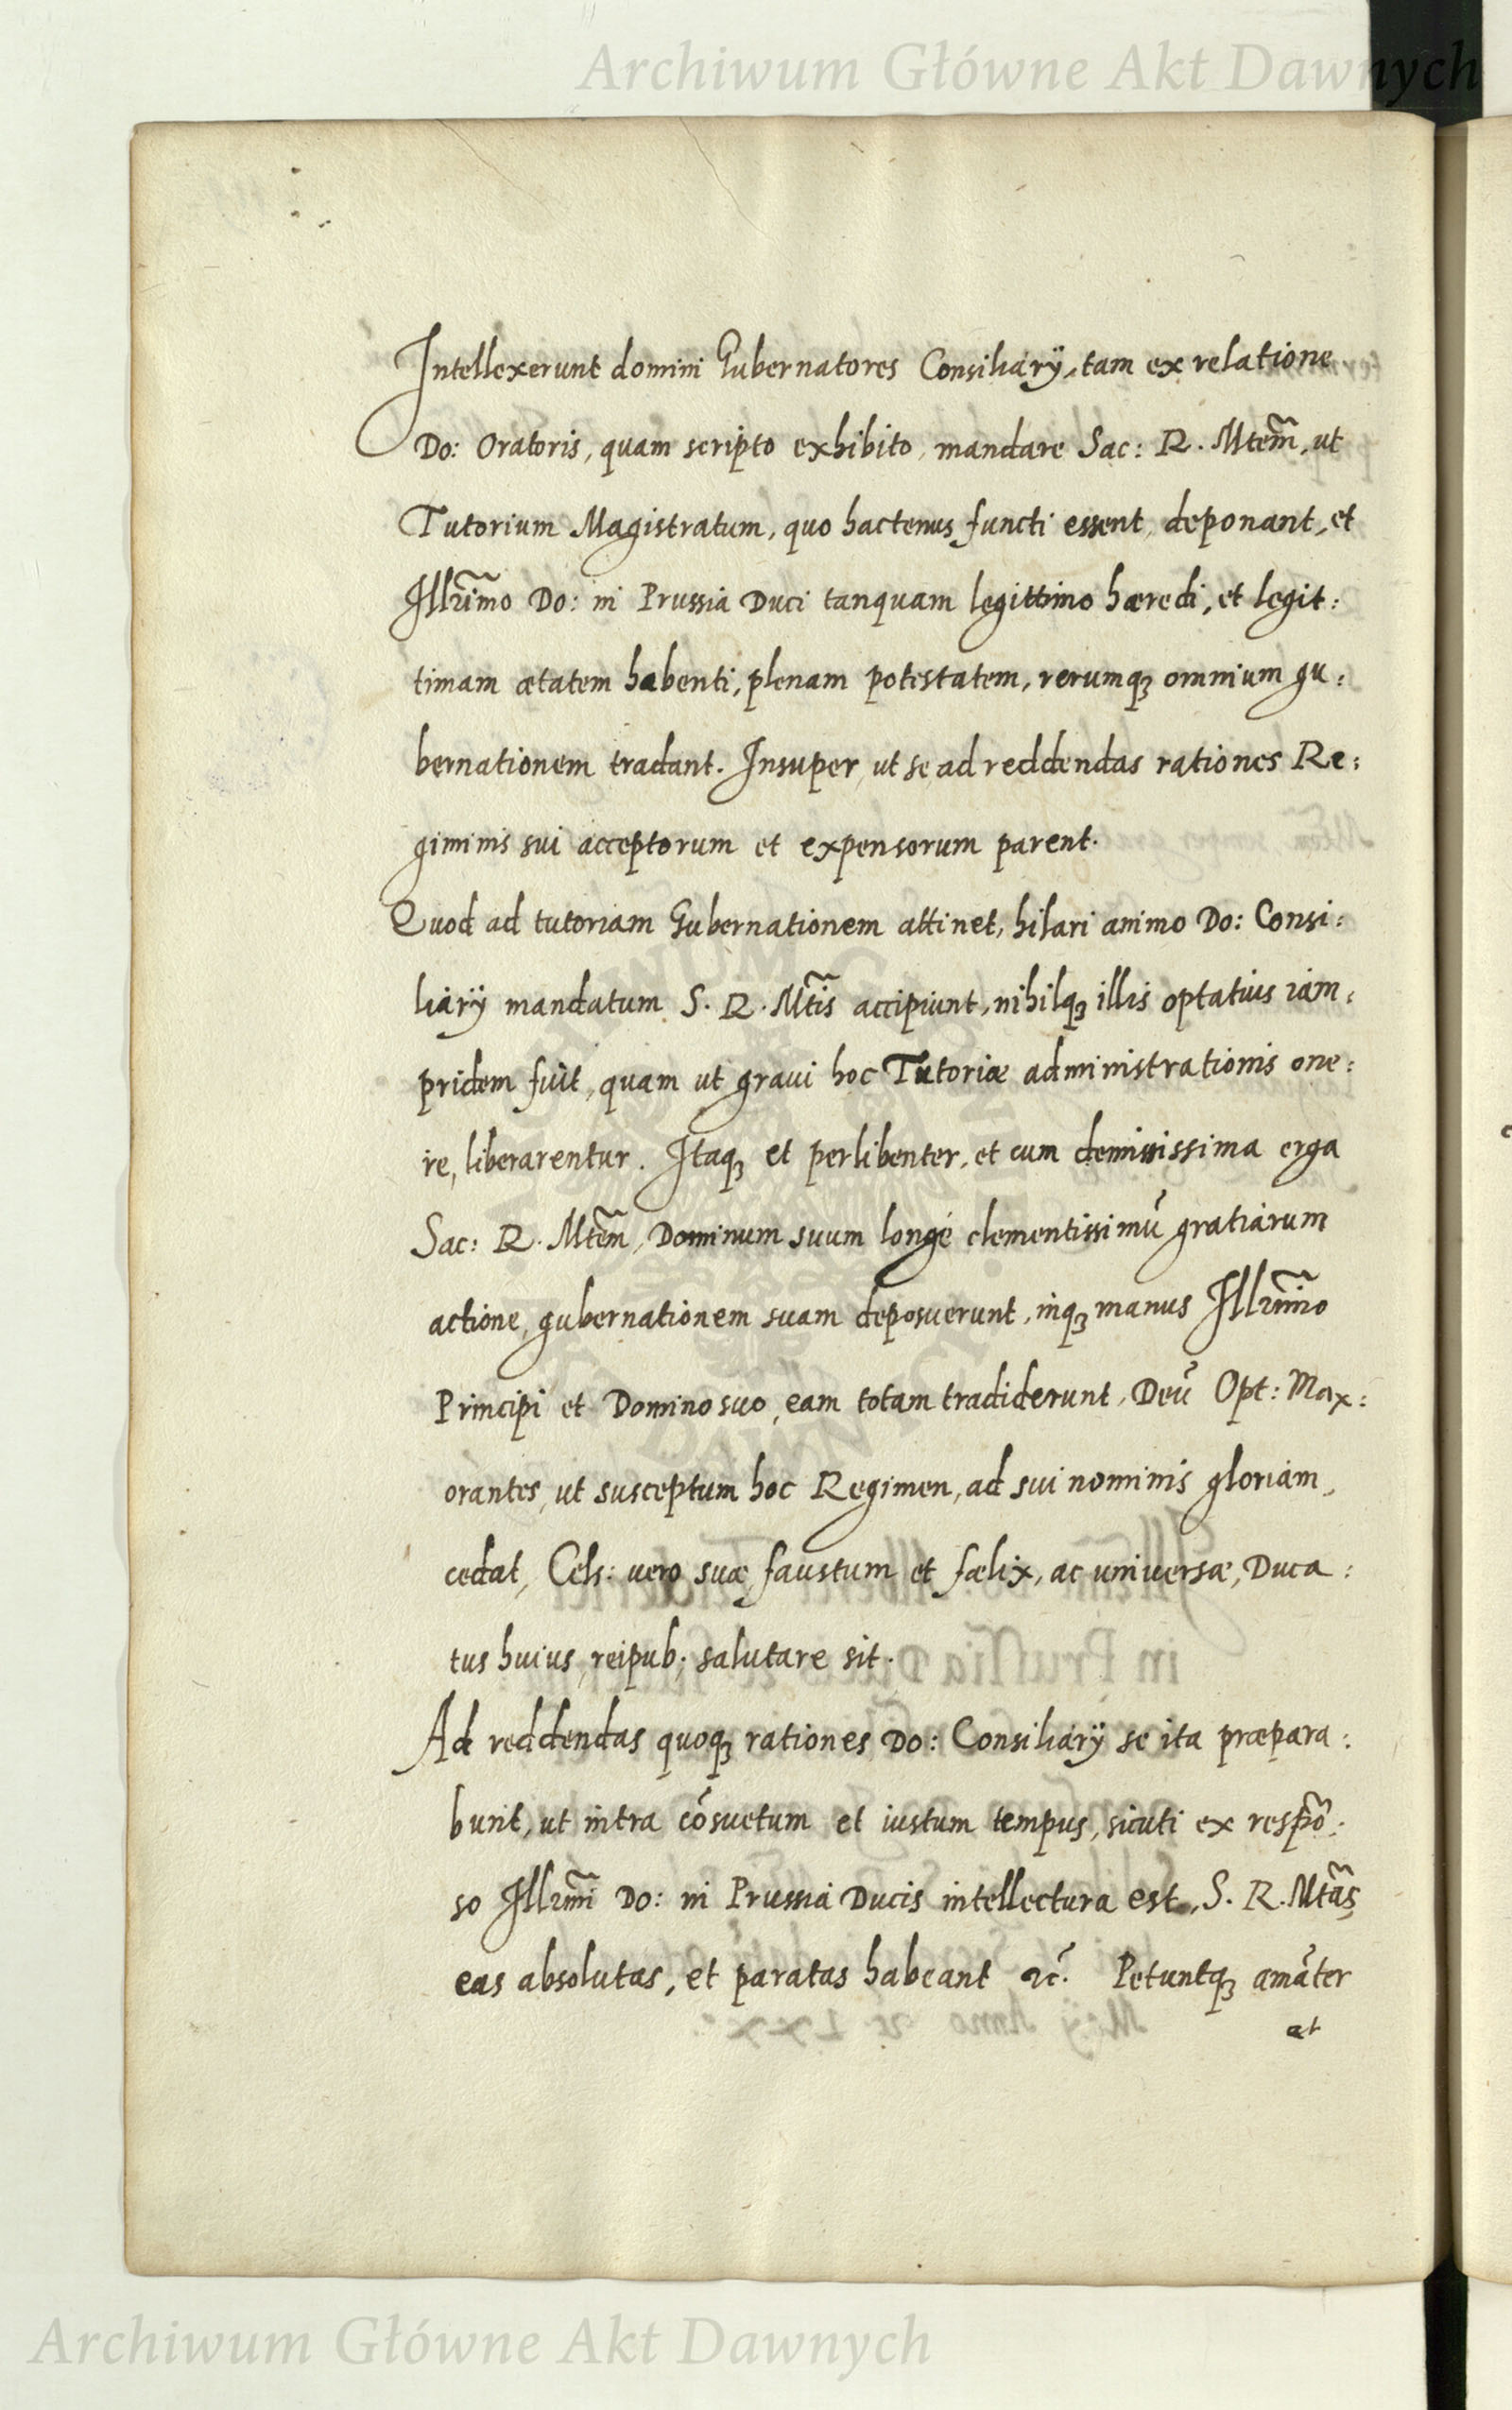 Archiwum Główne Akt Dawnych
Intellexerunt domini Gubernatores Consiliarÿ, tam ex relatione
Do: Oratoris, quam scripto exhibito, mandare Sac: R. Mtem̃, ut
Tutorium Magistratum, quo hactenus functi essent, deponant, et
Illr̃imo Do: in Prussia Duci tanquam legittimo hæredi, et legit:
timam ætatem habenti, plenam potestatem, rerumqꝫ omnium gu:
bernationem tradant. Insuper, ut se ad reddendas rationes Re:
giminis sui acceptorum et expensorum parent.
Quod ad tutoriam Gubernationem attinet, hilari animo Do: Consi:
liarÿ mandatum S. R. Mtis̃ accipiunt, nihilqꝫ illis optatius iam:
pridem fuit, quam ut graui hoc Tutoriæ administrationis one:
re, liberarentur. Itaqꝫ et perlibenter, et cum demississima erga
Sac: R. Mtem̃, Dominum suum longé clementissimū gratiarum
actione, gubernationem suam deposuerunt, inqꝫ manus Illr̃imo
Principi et Domino suo, eam totam tradiderunt, Deū Opt: Max:
orantes, ut susceptum hoc Regimen, ad sui nominis gloriam,
cedat, Cels: uero suæ faustum et fœlix, ac uniuersæ, Duca:
tus huius, reipub: salutare sit.
Ad reddendas quoqꝫ rationes Do: Consiliarÿ se ita præpara:
bunt, ut intra cōsuetum et iustum tempus, sicuti ex respō:
so Illr̃imi Do: in Prussia Ducis intellectura est, S. R. Mtas̃,
eas absolutas, et paratas habeant ꝛc̃. Petuntqꝫ amāter
et
Archiwum Główne Akt Dawnych